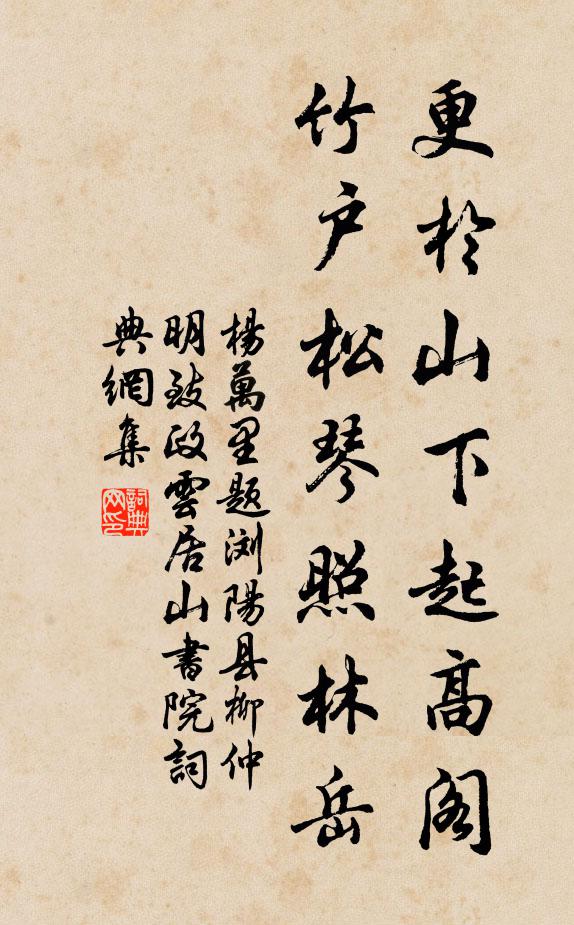 更於山下起高阁
竹户松琴照林岳
楊萬里题浏陽县柳仲
明致政雲居山書院詞
典網集
詞典网印